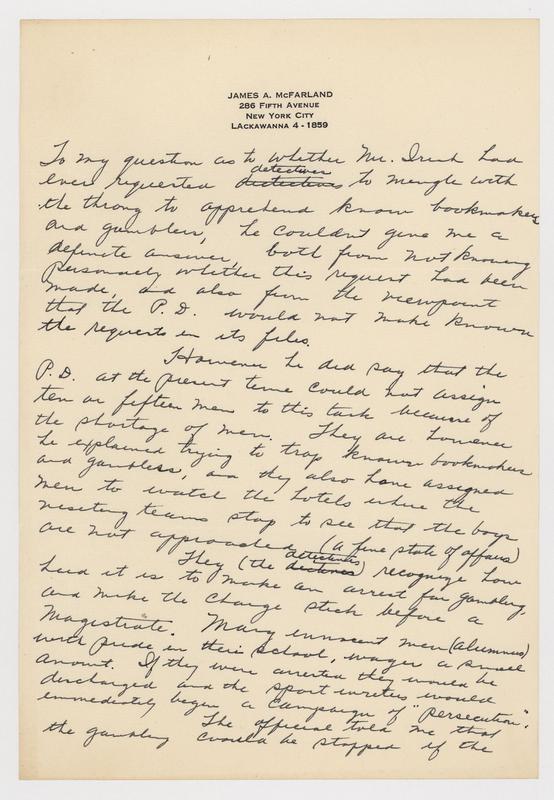 JAMES A. McFARLAND
286 FIFTH AVENUE
NEW YORK CITY
LACKAWANNA 4 - 1859
To my question as to whether Mr. Irish had
detectives
ever requested detectives to mingle with
the throng to apprehend known bookmakers
and gamblers, he couldn't give me a
definite answer, both from not knowing
personally whether this request had been
made, and also from the viewpoint
that the P. D. would not make known
the requests in its files.
However he did say that the
P. D. at the present time could not assign
ten or fifteen men to this task because of
the shortage of men. They are however
he explained trying to trap known bookmakers
and gamblers, and they also have assigned
men to watch the hotels where the
visiting teams stop to see that the boys
are not approached (a fine state of affairs)
detectives
They (the) recognize how
hard it is to make an arrest for gambling,
and make the charge stick before a
Magistrate. Many innocent men (alumnus)
with pride in their school, wager a small
amount. If they were arrested they would be
discharged and the sport writers would
immediately begin a campaign of "persecution".
The official told me that
the gambling could be stopped if the